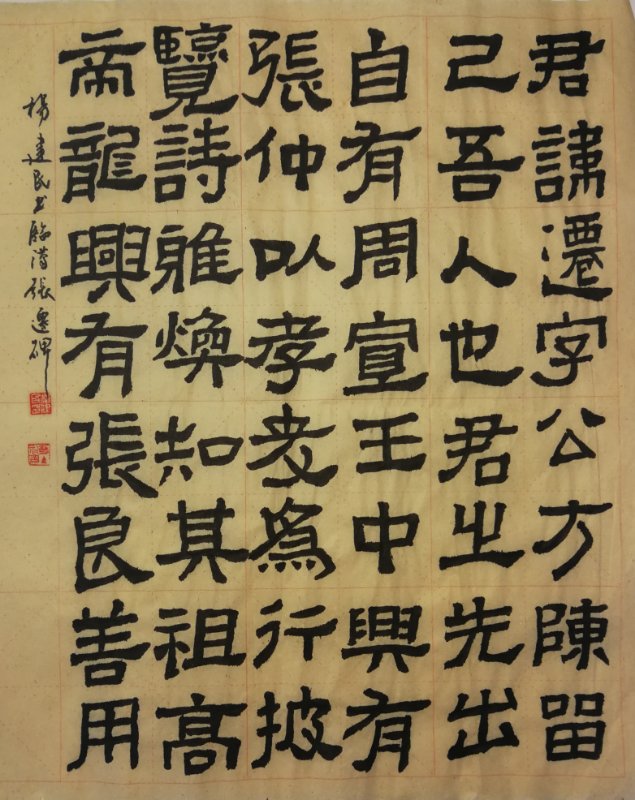 君諱遷字公方陳留
己吾人也君之先出
自有周宣王中興有
張仲以孝友為行披
覽詩雅煥知其祖高
帝龍興有張良善用
楊建民书臨漢張遷碑